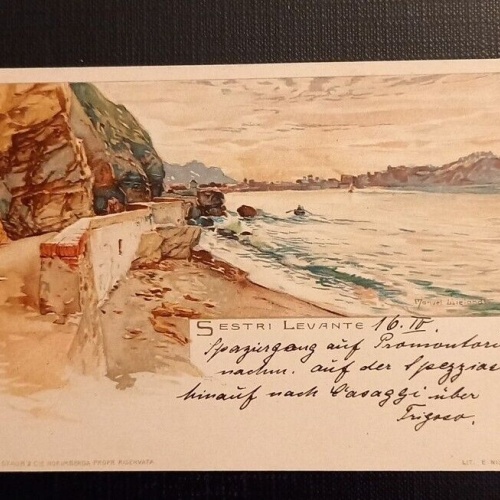 Manuel Wielandt
SESTRI LEVANTE 16. IV.
Spaziergang auf Promontori
nachm. auf der Spezzias
hinauf nach Casaggi über
Trigoso.
& CIE NÜRNBERG. PROPR. RISERVATA
LIT. E.